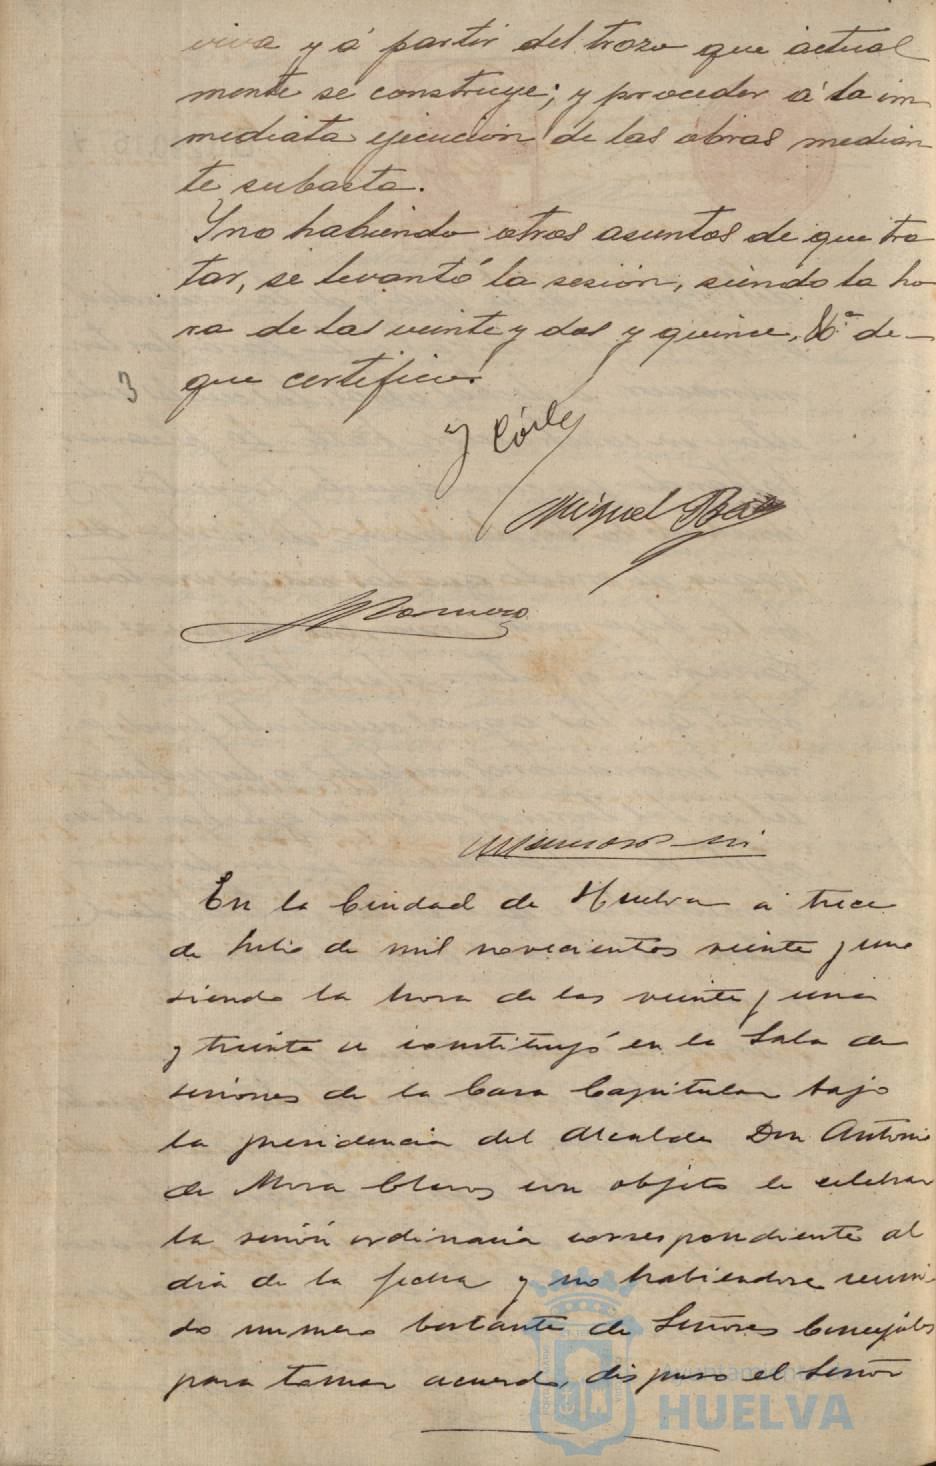 viva y á partir del trozo que actual
mente se construye; y proceder á la in
mediata ejecución de las obras median
te subasta.
Y no habiendo otros asuntos de que tra
tar, se levantó la sesión, siendo la ho
ra de las veinte y dos y quince, de
que certifico.
3
Miguel Báez
Romero
En la Ciudad de Huelva a trece
de Julio de mil novecientos veinte y uno
siendo la hora de las veinte y una
y treinta se constituyó en la Sala de
sesiones de la Casa Capitular bajo
la presidencia del Alcalde Don Antonio
de Mora Claros con objeto de celebrar
la sesión ordinaria correspondiente al
dia de la fecha y no habiendose reuni
do numero bastante de Señores Concejales
para tomar acuerdo, dispuso el Señor
Ayuntamiento
HUELVA